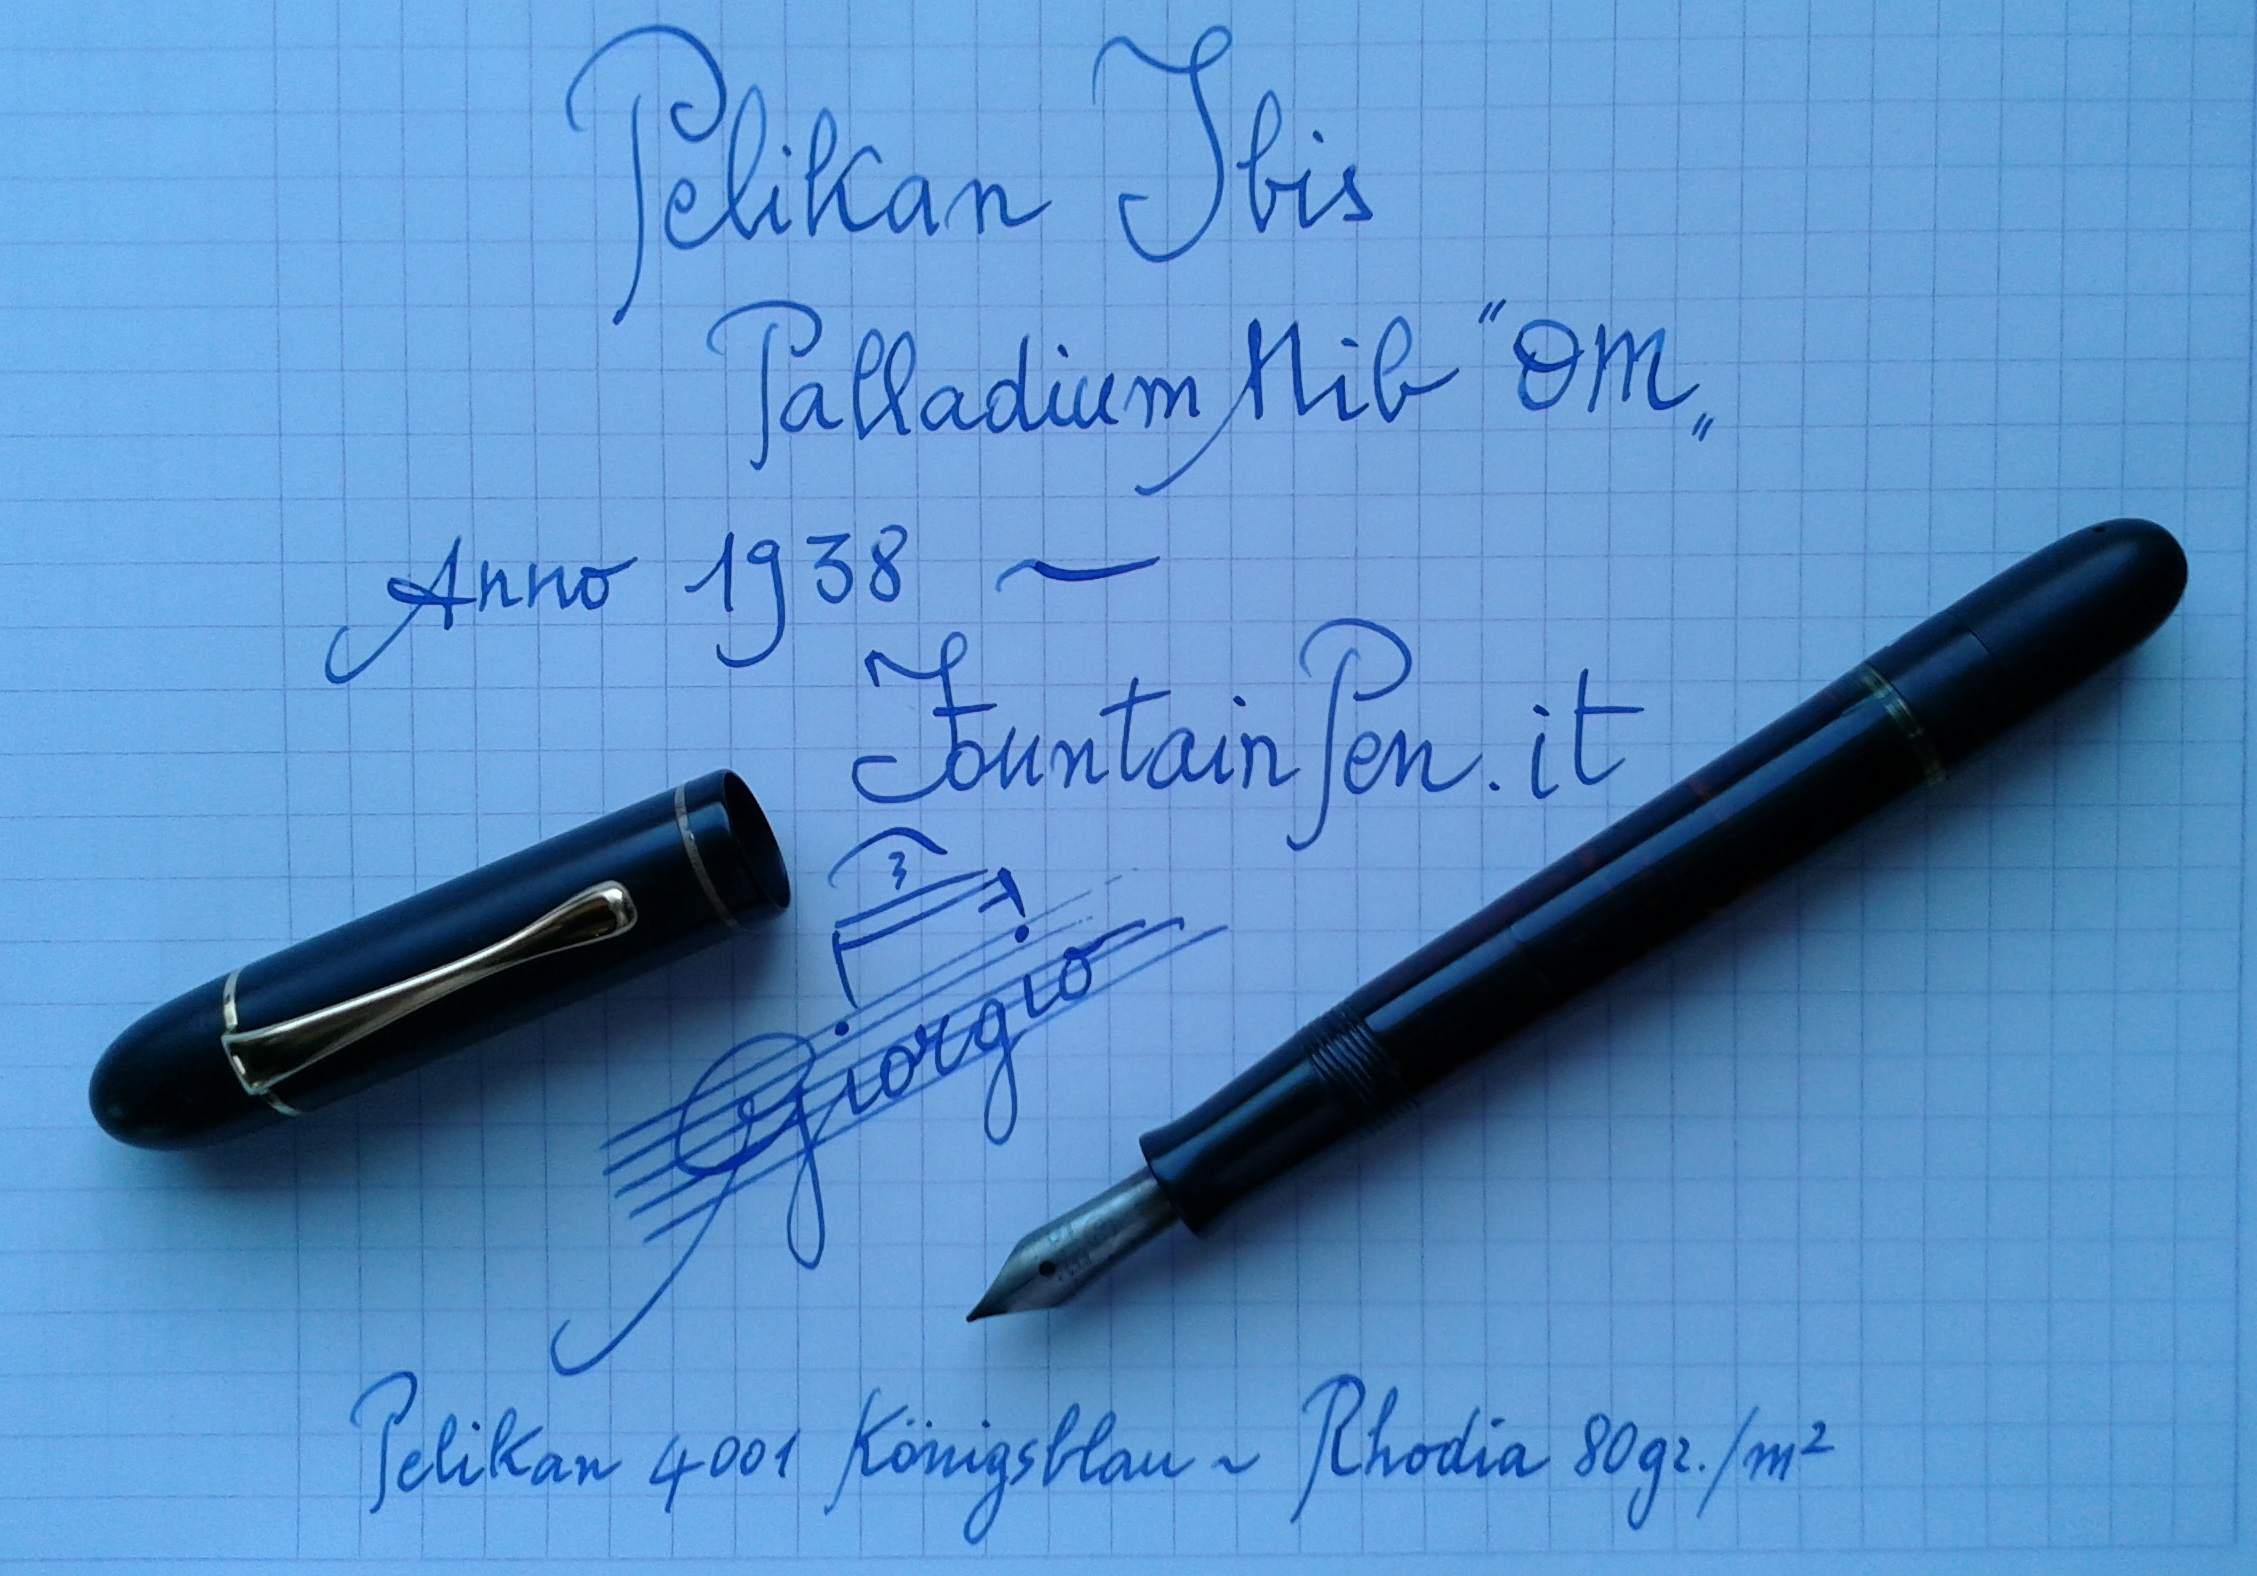 Pelikan Ibis
Palladium Nib "OM„
Anno 1938 ~
FountainPen.it
3
Giorgio
Pelikan 4001 Königsblau ~ Rhodia 80gr./m²